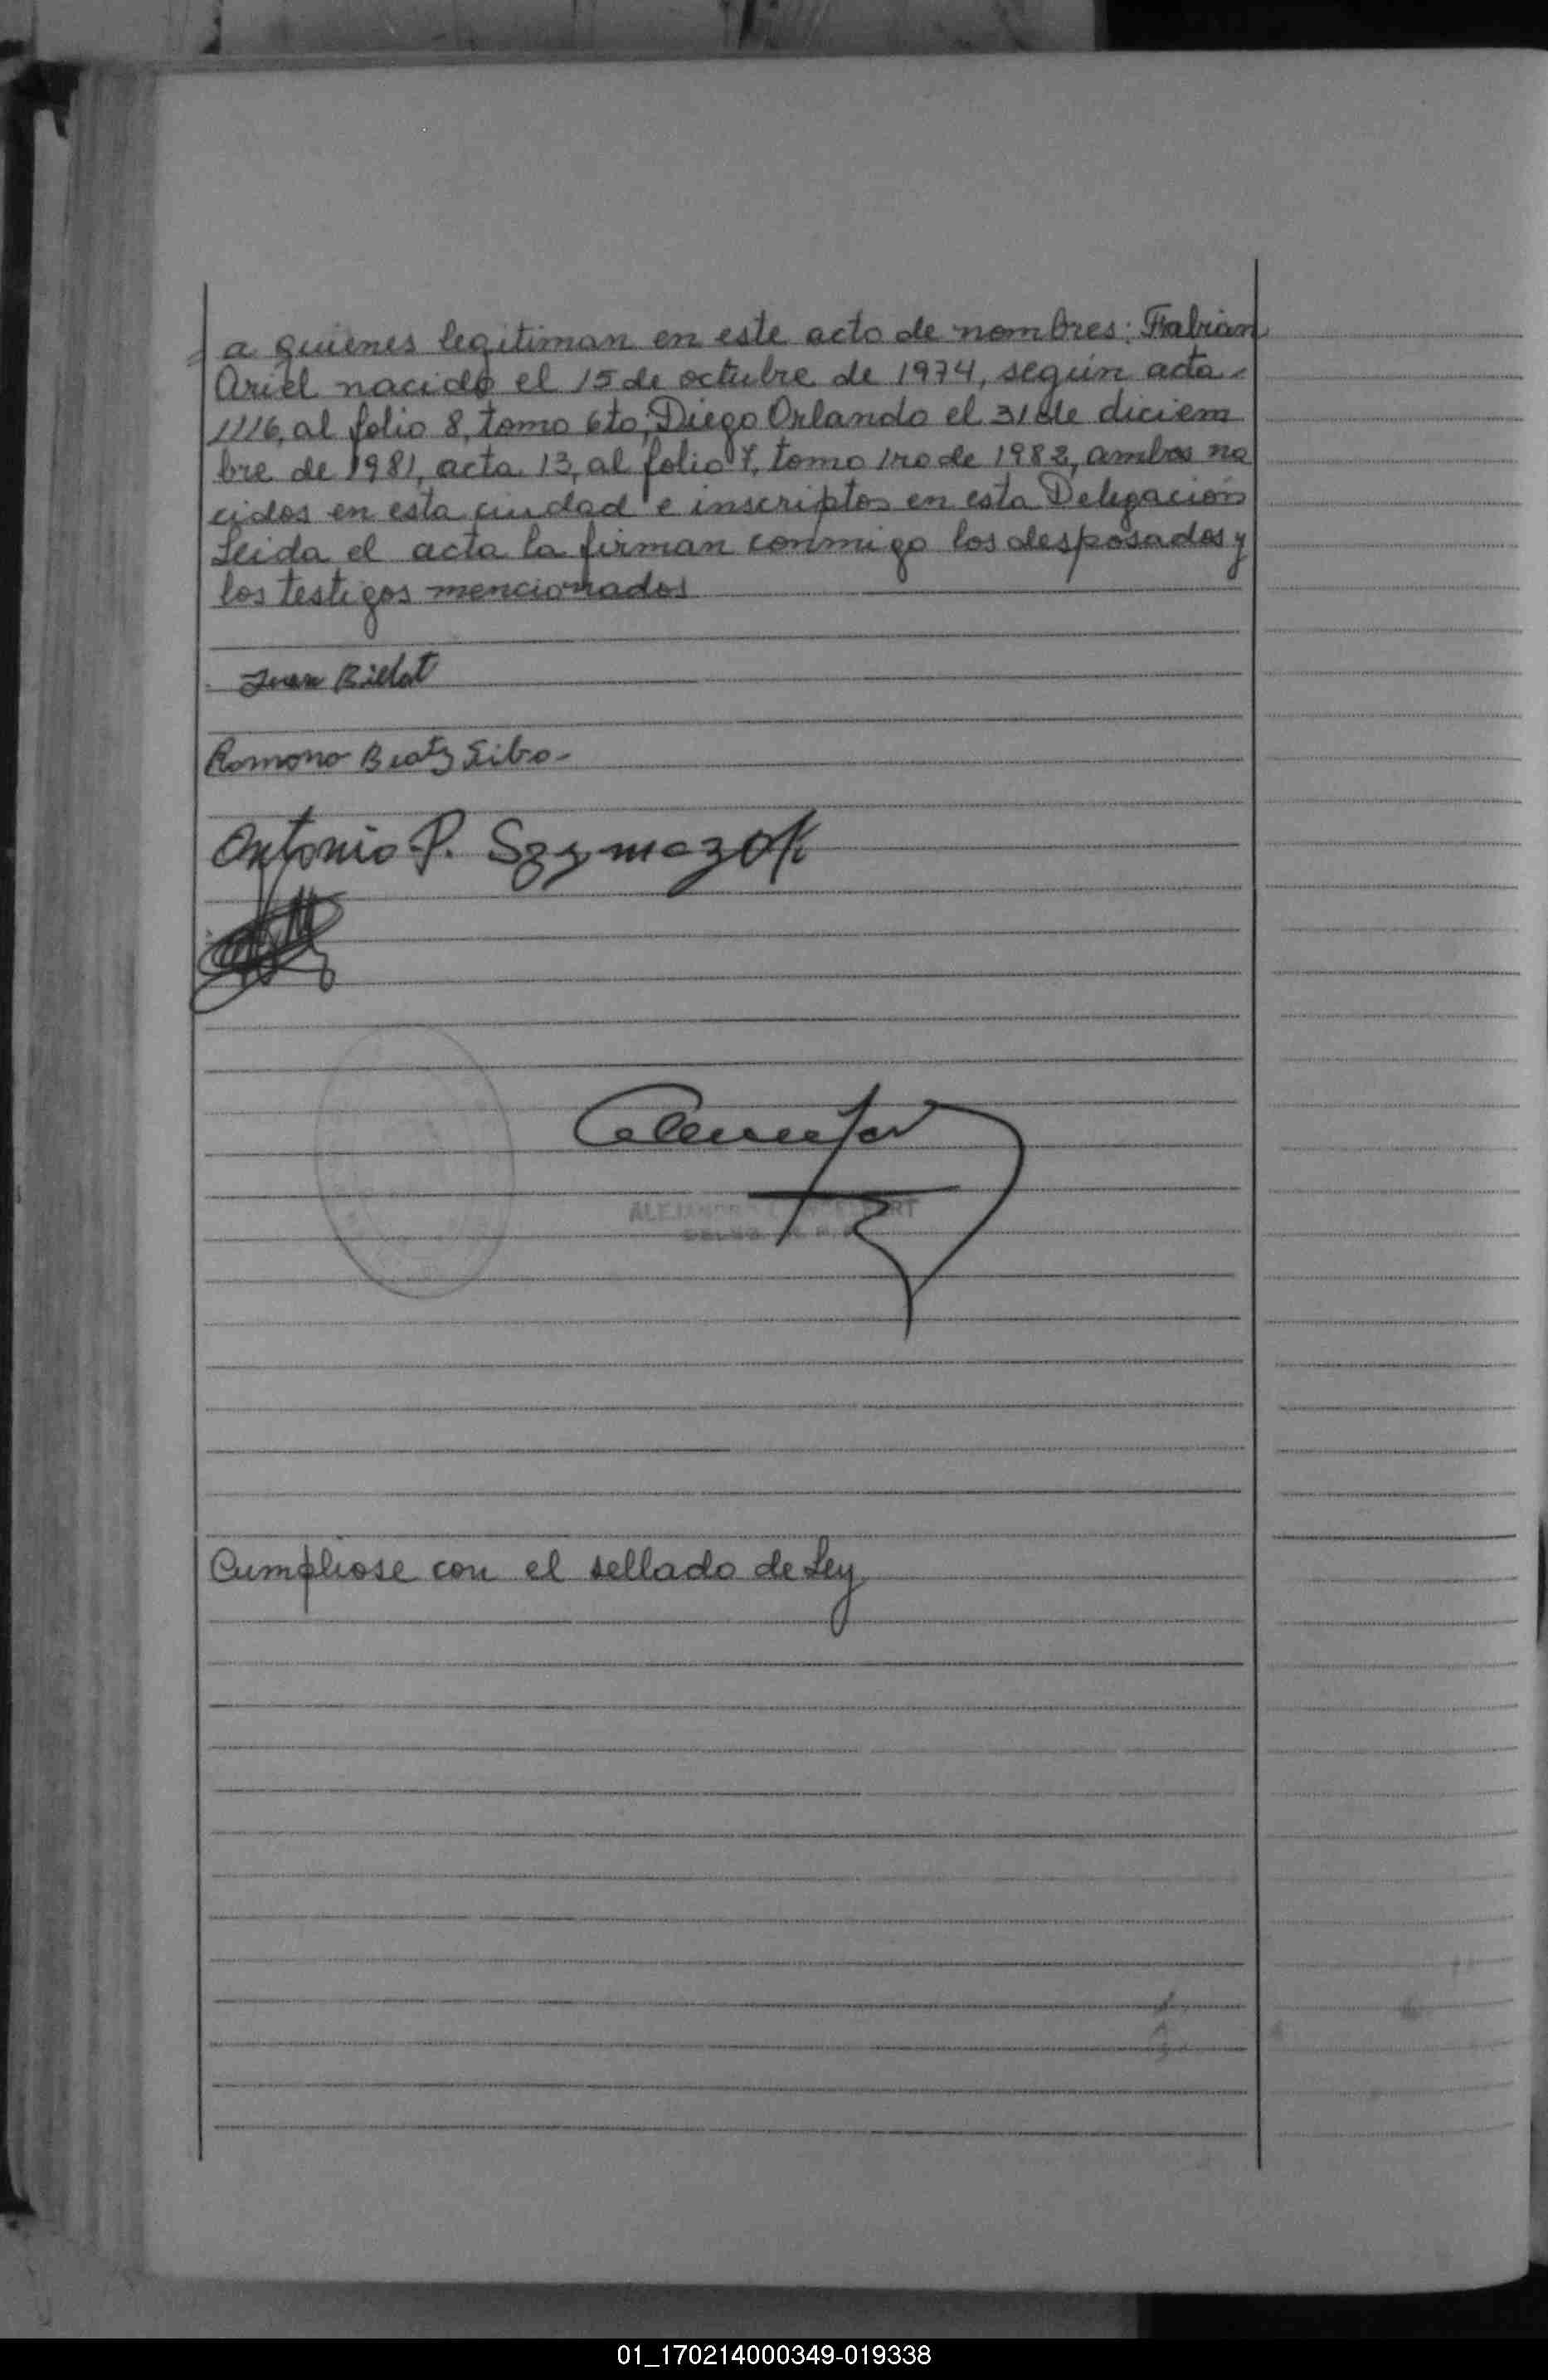 a quienes legitiman en este acto de nombres: Fabian
Ariel nacido el 15 de octubre de 1974, según acta
1116, al folio 8, tomo 6to; Diego Orlando el 31 de diciem
bre de 1981, acta 13, al folio 7, tomo 1ro de 1982, ambos na
cidos en esta ciudad e inscriptos en esta Delegación
Leida el acta la firman conmigo los desposados y
los testigos mencionados
Juan Billat
Romono Beatz
Antonio P.
Cumpliose con el sellado de Ley
01_170214000349-019338